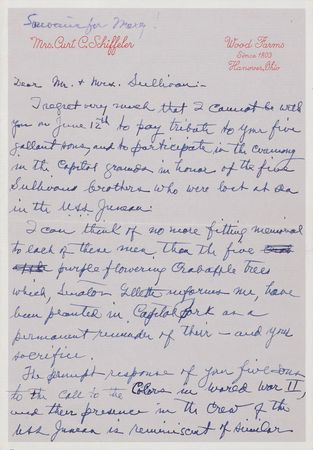 Souvenir for Mary!
Mrs. Curt C. Schiffeler
Wood Farms
Since 1803
Hanover, Ohio
Dear Mr. & Mrs. Sullivan:-
I regret very much that I cannot be with
you on June 12th to pay tribute to your five
gallant sons, and to participate in the ceremony
in the Capitol grounds in honor of the five
Sullivans brothers who were lost at sea
in the U.S.S. Juneau.
I can think of no more fitting memorial
to each of these men than the five
purple flowering Crabapple trees
which, Senator Gillette informs me, have
been planted in Capitol Park as a
permanent reminder of their — and your
sacrifice.
The prompt response of your five sons
to the call to the Colors in World War II,
and their presence in the Crew of the
USS Juneau is reminiscent of similar